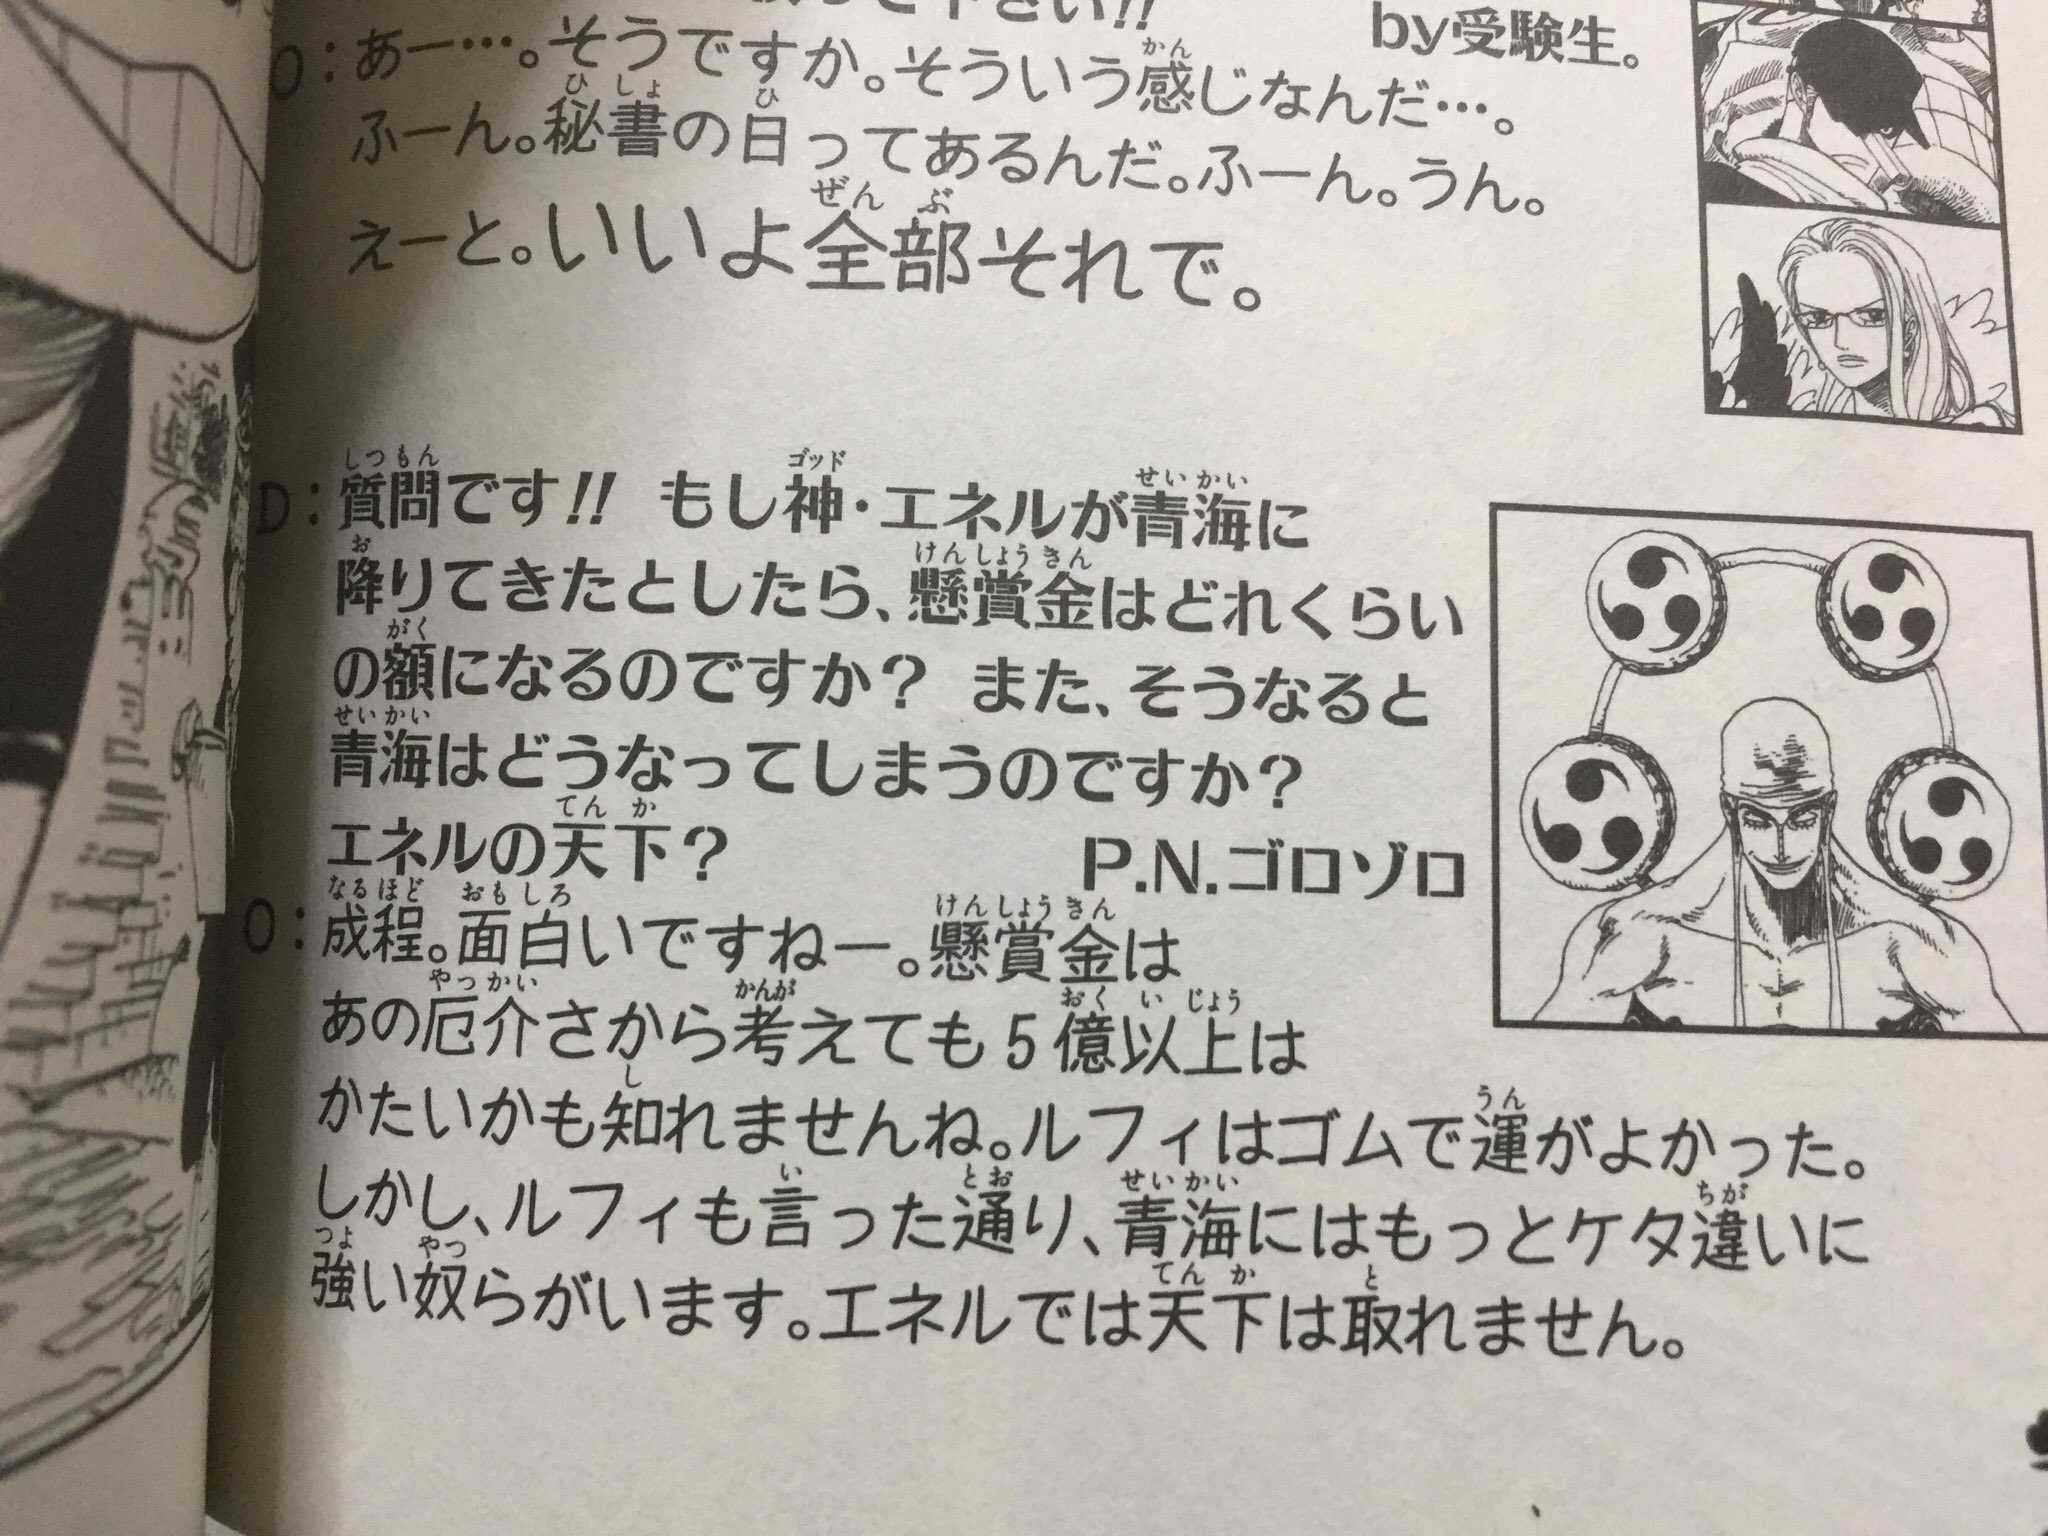 by受験生。
O：あー…。そうですか。そういう感じなんだ…。
ふーん。秘書の日ってあるんだ。ふーん。うん。
えーと。いいよ全部それで。
D：質問です!! もし神・エネルが青海に
降りてきたとしたら、懸賞金はどれくらい
の額になるのですか？ また、そうなると
青海はどうなってしまうのですか？
エネルの天下？ P.N.ゴロゾロ
O：成程。面白いですねー。懸賞金は
あの厄介さから考えても5億以上は
かたいかも知れませんね。ルフィはゴムで運がよかった。
しかし、ルフィも言った通り、青海にはもっとケタ違いに
強い奴らがいます。エネルでは天下は取れません。